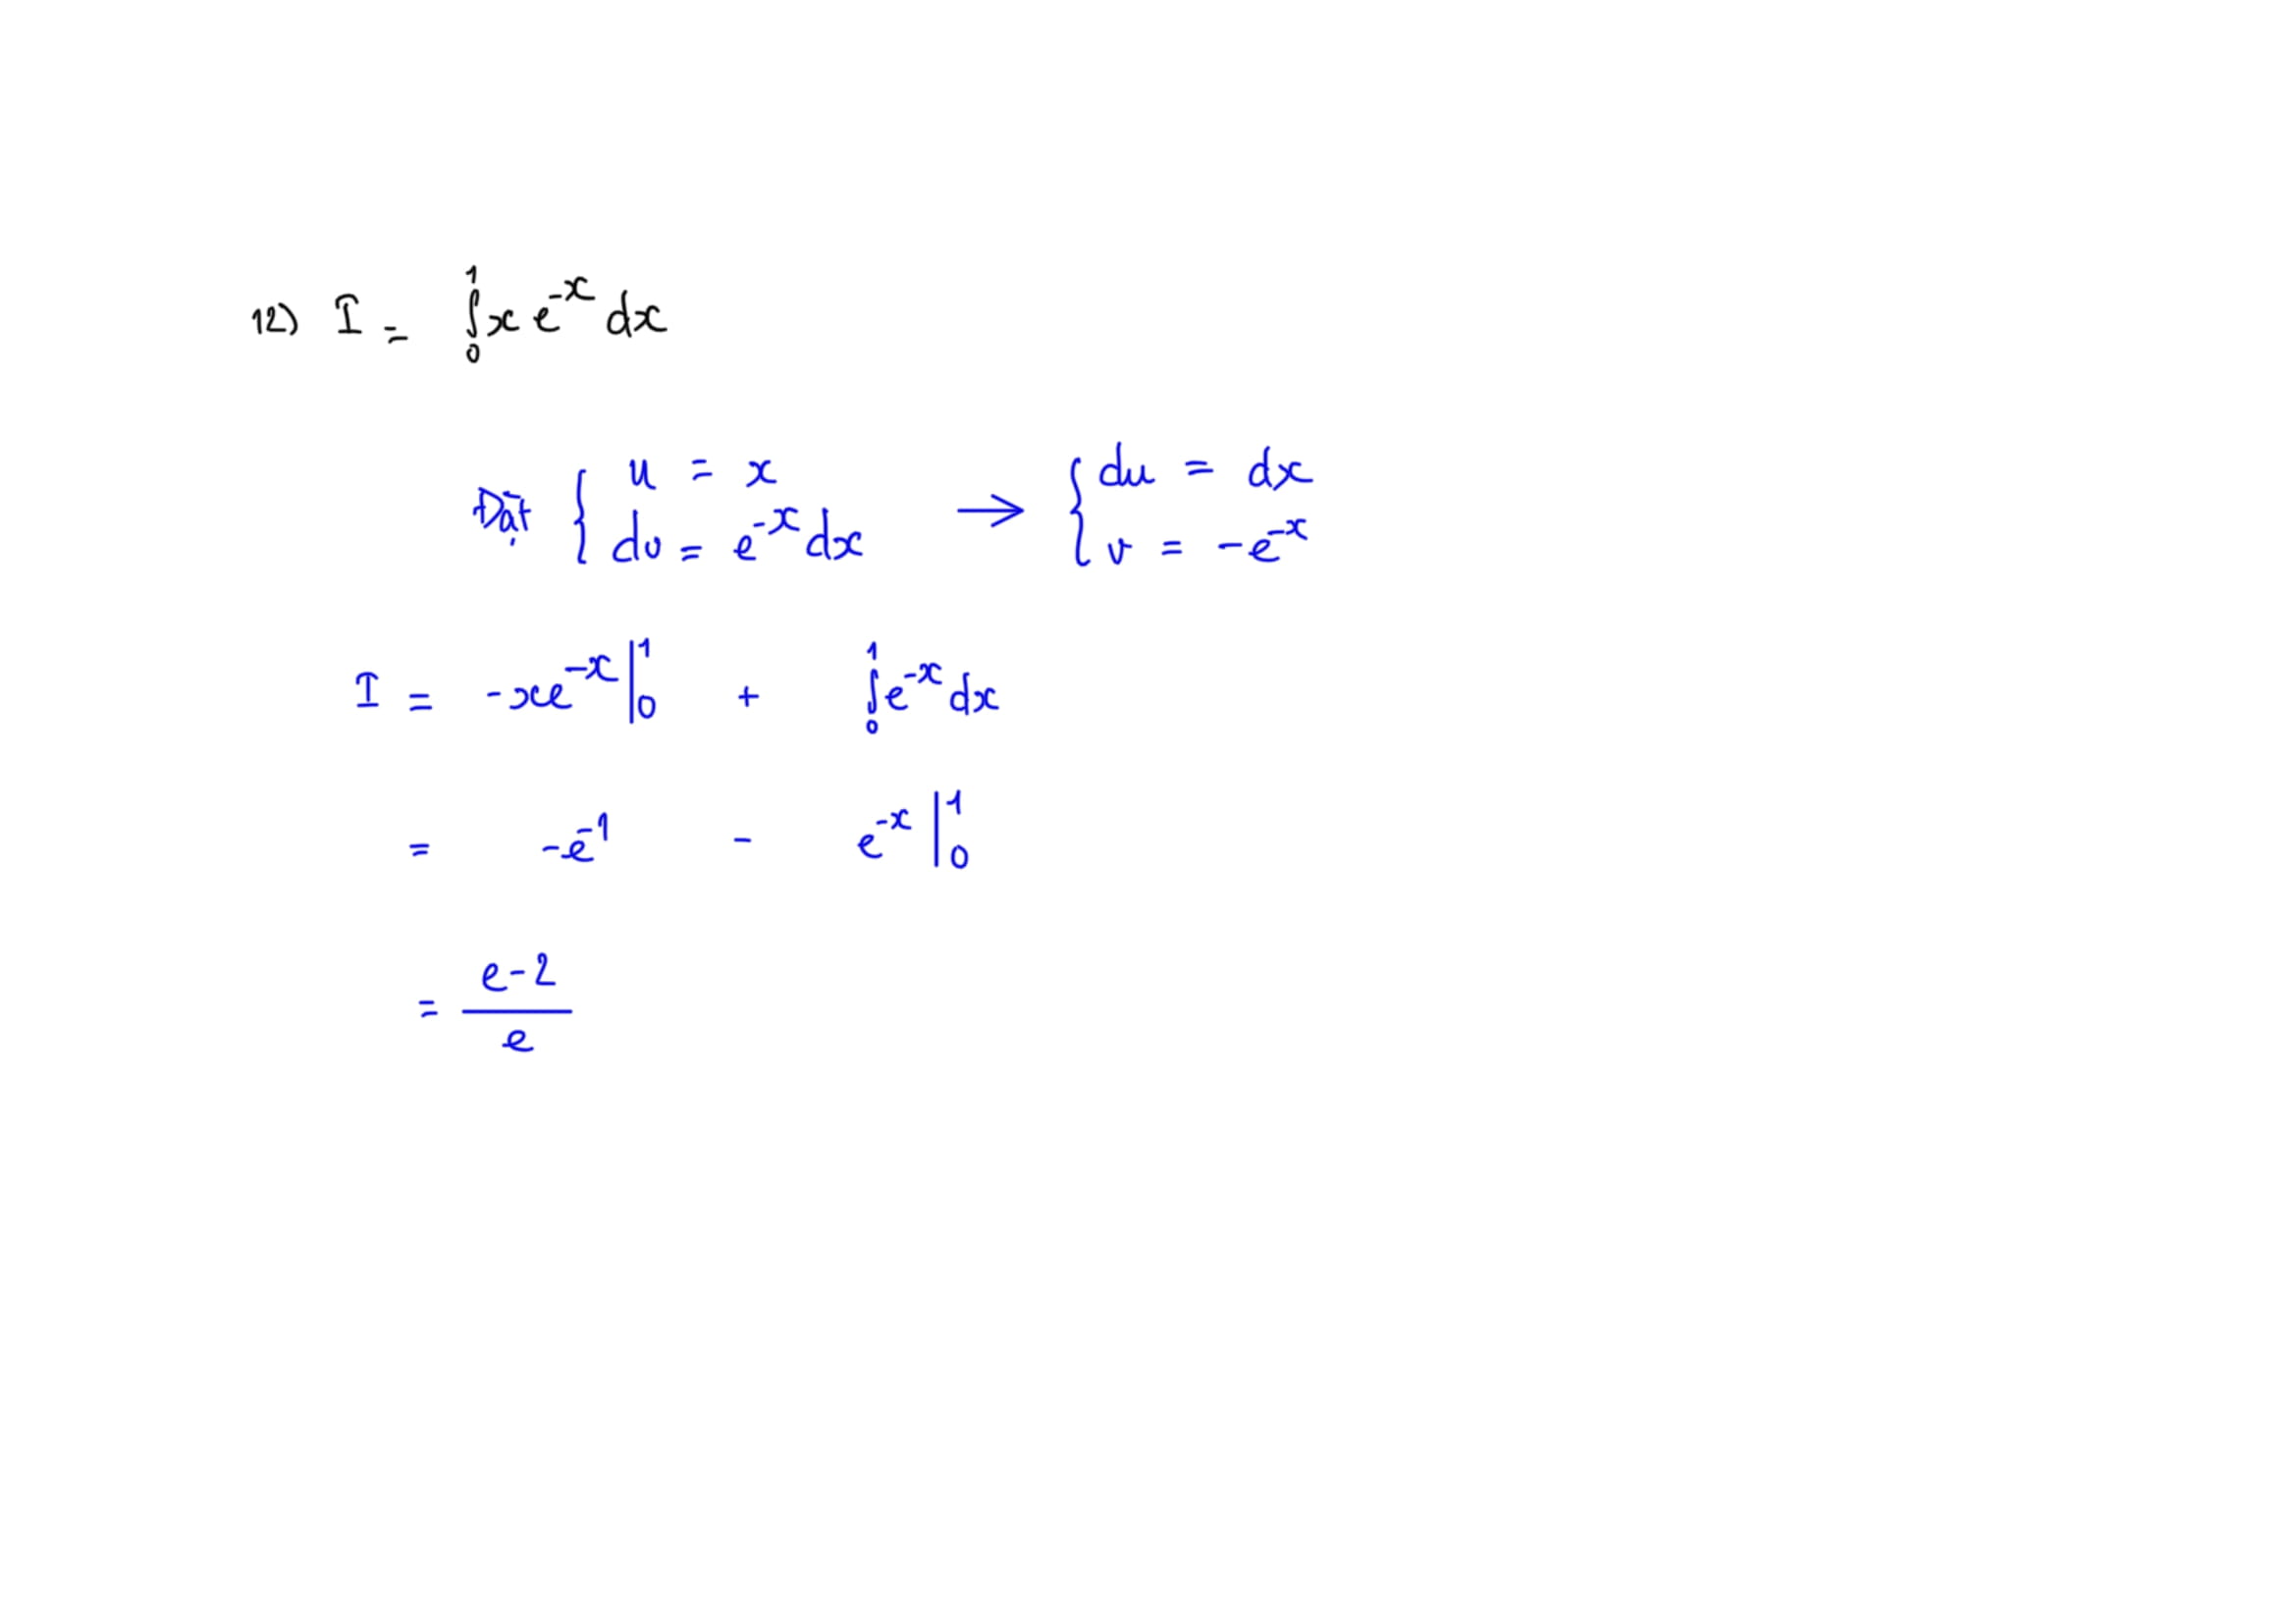 12) I = ∫₀¹ x e^{-x} dx
Đặt { u = x → { du = dx
dv = e^{-x} dx v = -e^{-x}
I = -xe^{-x} |₀¹ + ∫₀¹ e^{-x} dx
= -e^{-1} - e^{-x} |₀¹
= \frac{e-2}{e}